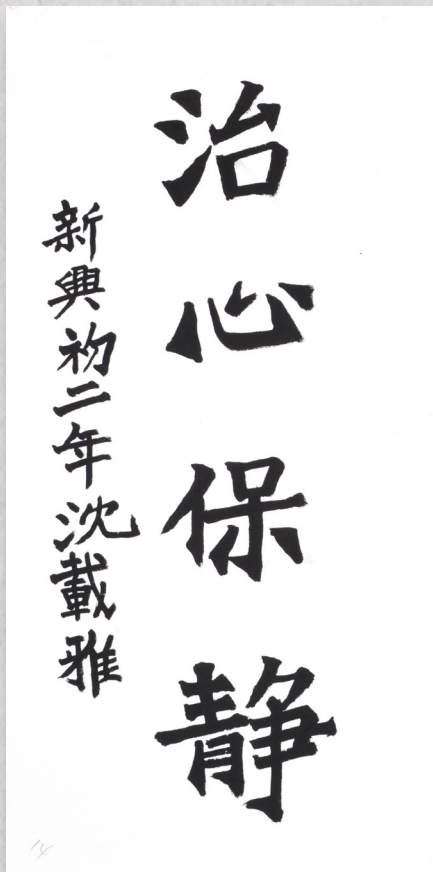 治心保静
新興初二年沈載雅
14